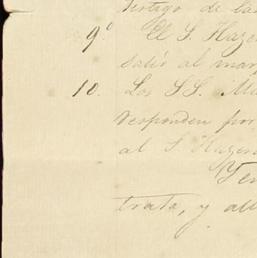 vertago de las
9º El S. Hazen
salió al mar
10. Los SS. Mu
responden por
al S. Hazen
Ten
trata, y all